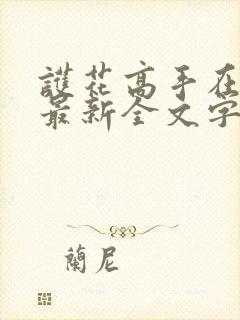 護花高手在
最新全文字
蘭尼